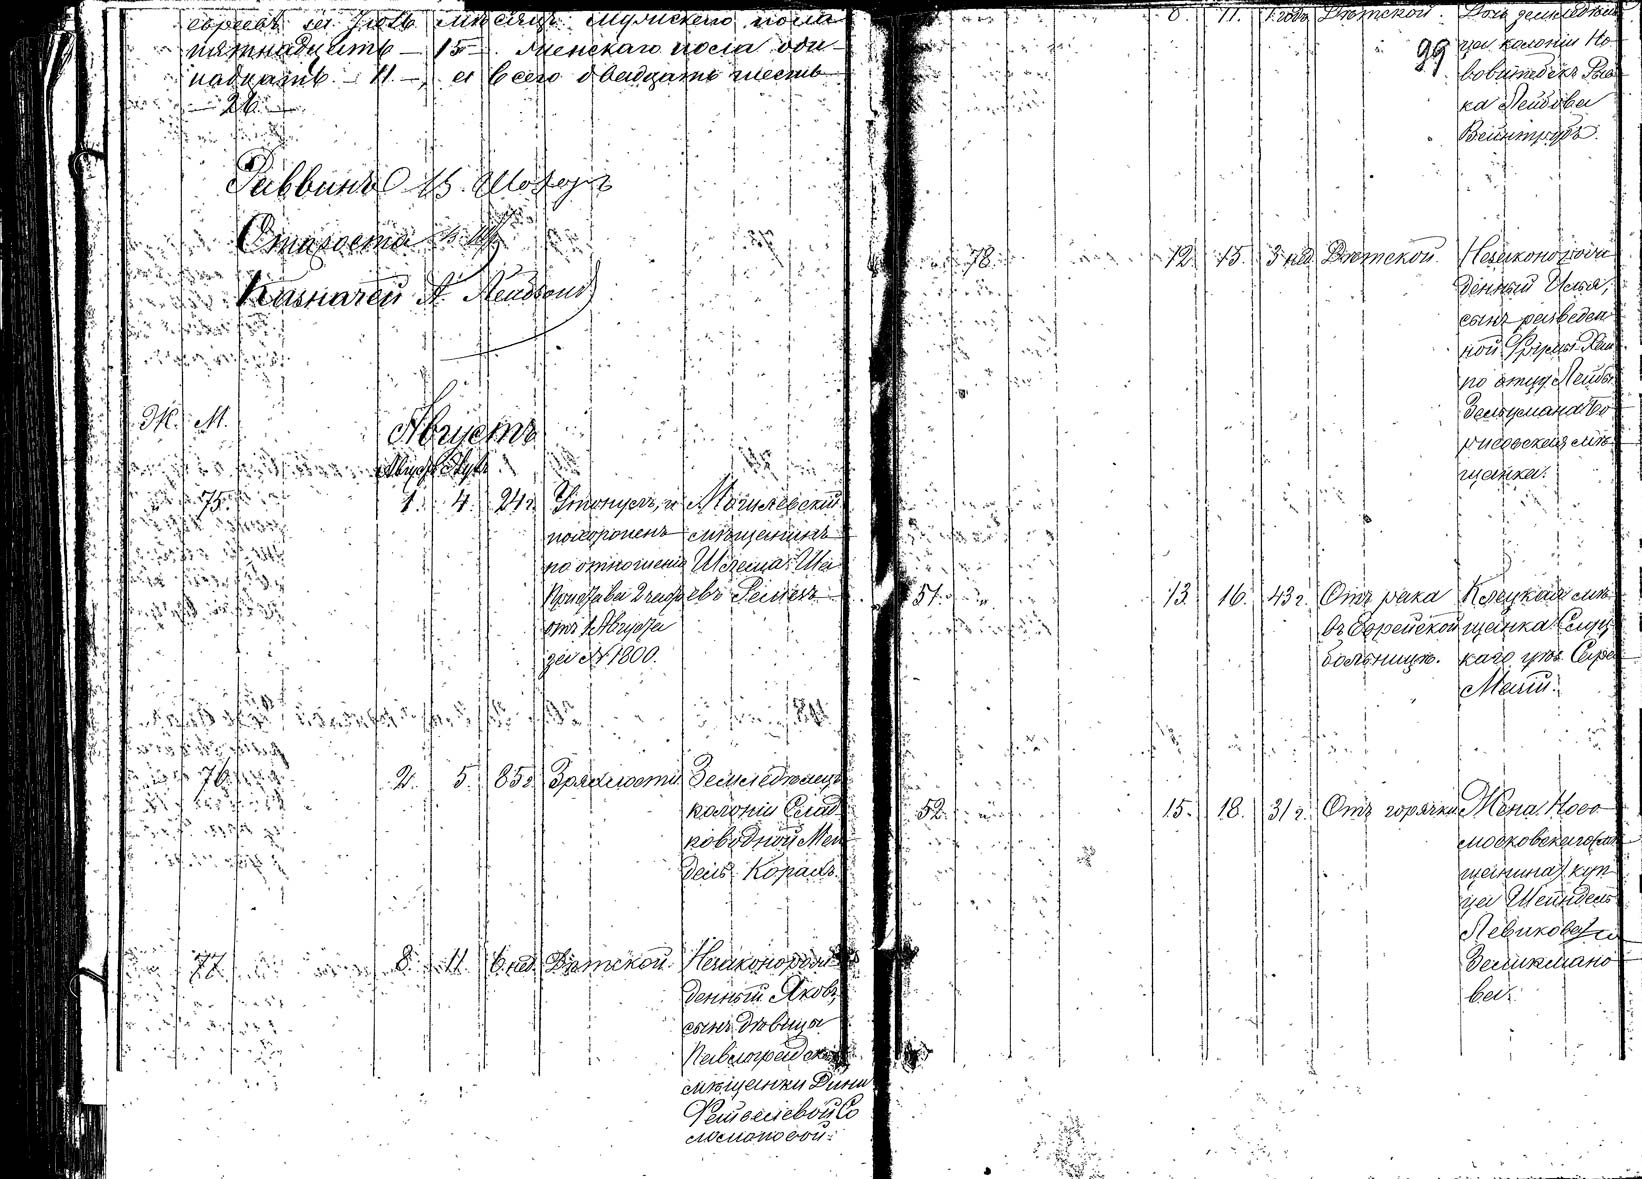 евреевъ за Іюль мѣсяцъ мужскаго пола
пятнадцать — 15 — женскаго пола оди-
надцать — 11 —, а всего двадцать шесть
— 26 —
Раввинъ В. Шохоръ
Староста
Казначей А. Лейбзонъ
Ж. М.
Августъ
75. 1. 4. 24 г. Утонулъ, и Могилевскій
похороненъ мѣщанинъ
по отношенію Шлема
Пристава 2 части
отъ 1 Августа
за № 1800.
76 2. 5. 85 г. Дряхлости Земледѣлецъ
колоніи Слад-
ководной Мен-
дель Коралъ
77 8. 11. 6 нед. Дѣтской. Незаконорож-
денный Яковъ,
сынъ дѣвицы
Павлоградской
мѣщанки Дины
Фейвелевой Со-
ломоновой.
8 11. 1 годъ Дѣтской. Дочь земледѣль-
99
ца колоніи Но-
вовитебскъ
ка Лейбова
Вейнтрубъ.
78. 12. 15. 3 нед. Дѣтской. Незаконорож-
денный Илья,
сынъ разведен-
ной Фрумы-Хаи
по отцу Лейбы
Зельцмана Бо-
рисовская мѣ-
щанка.
51. 13. 16. 43 г. Отъ рака Клецкая мѣ-
въ Еврейской щанка Слуц-
больницѣ. каго уѣз. Сара
52. 15. 18. 31 г. Отъ горячки Жена Ново-
московскаго (мѣ-
щанина) куп-
ца Шейндель
Левикова
Зеликмано-
ва.